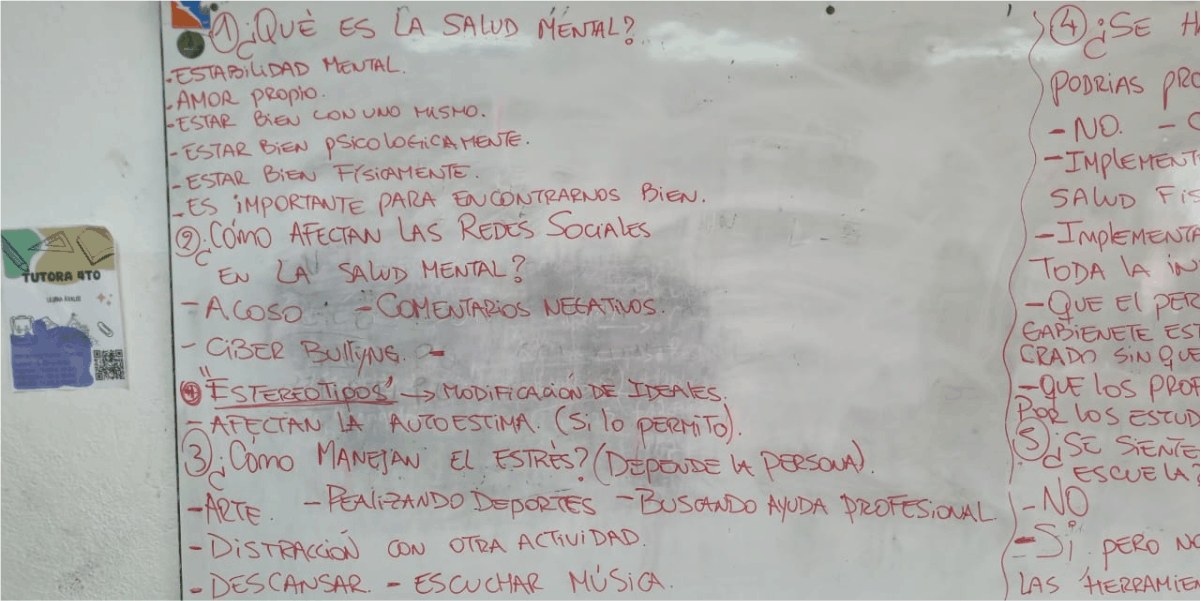 ① ¿QUÉ ES LA SALUD MENTAL?
-ESTABILIDAD MENTAL.
-AMOR PROPIO.
-ESTAR BIEN CON UNO MISMO.
-ESTAR BIEN PSICOLOGICAMENTE.
-ESTAR BIEN FÍSICAMENTE.
-ES IMPORTANTE PARA ENCONTRARNOS BIEN.
② ¿CÓMO AFECTAN LAS REDES SOCIALES
EN LA SALUD MENTAL?
- ACOSO - COMENTARIOS NEGATIVOS.
- CIBER BULLYNG. -
"ESTEREOTIPOS" → MODIFICACIÓN DE IDEALES.
- AFECTAN LA AUTOESTIMA. (SI LO PERMITO).
③ ¿CÓMO MANEJAN EL ESTRÉS? (DEPENDE LA PERSONA).
-ARTE. -REALIZANDO DEPORTES -BUSCANDO AYUDA PROFESIONAL.
-DISTRACCIÓN CON OTRA ACTIVIDAD.
-DESCANSAR. - ESCUCHAR MÚSICA.
④ ¿SE HA
PODRIAS PRO
-NO. -
-IMPLEMENT
SALUD FIS
-IMPLEMENTA
TODA LA IN
-QUE EL PER
GABIENETE EST
CRADO SIN QUE
-QUE LOS PROF
POR LOS ESTUD
⑤ ¿SE SIENTE
ESCUELA?
-NO
-SI, PERO NO
LAS HERRAMIEN
TUTORA 4TO